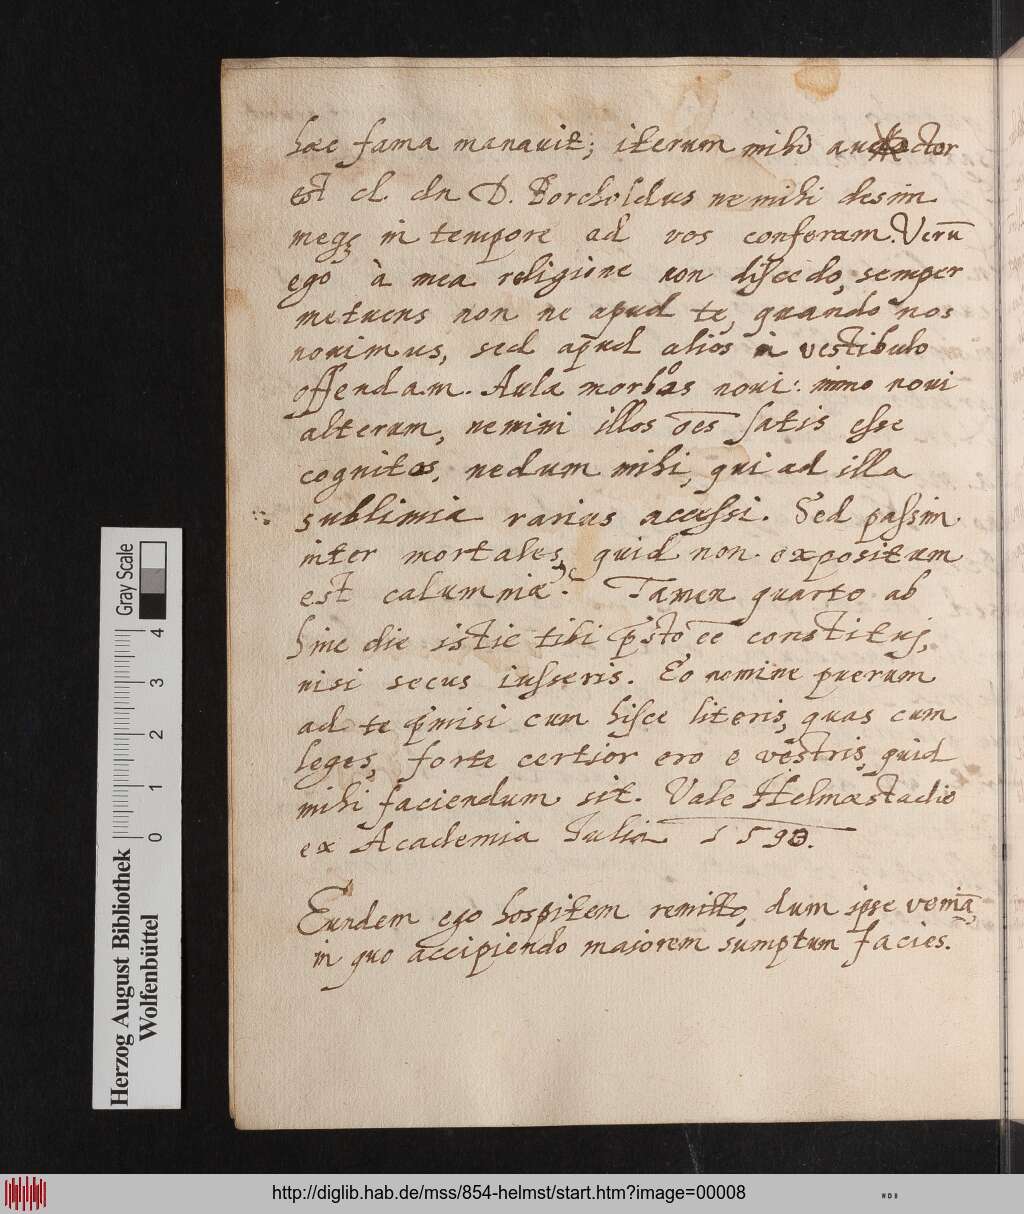 hac fama manauit; iterum mihi auctor
est cl. dn D. Borcholdus ne mihi desim
meq̃ in tempore ad vos conferam. Verũ
ego à mea religione non discedo, semper
metuens non ne apud te, quando nos
nouimus, sed apud alios in vestibulo
offendam. Aula morbos noui: immo noui
alterum, nemini illos oẽs satis esse
cognitos, nedum mihi, qui ad illa
sublimia rarius accessi. Sed passim
inter mortales, quid non expositum
est calumniæ? Tamen quarto ab
hinc die istic tibi p̃sto eẽ constituj,
nisi secus iusseris. Eo nomine puerum
ad te p̃misi cum hisce literis, quas cum
leges, forte certior ero e vestris, quid
mihi faciendum sit. Vale Helmæstadio
ex Academia Iulia 1590.
Eundem ego hospitem remitto, dum ipse veniã,
in quo accipiendo maiorem sumptum facies.
Herzog August Bibliothek
Wolfenbüttel
0 1 2 3 4
Gray Scale
http://diglib.hab.de/mss/854-helmst/start.htm?image=00008
WDB